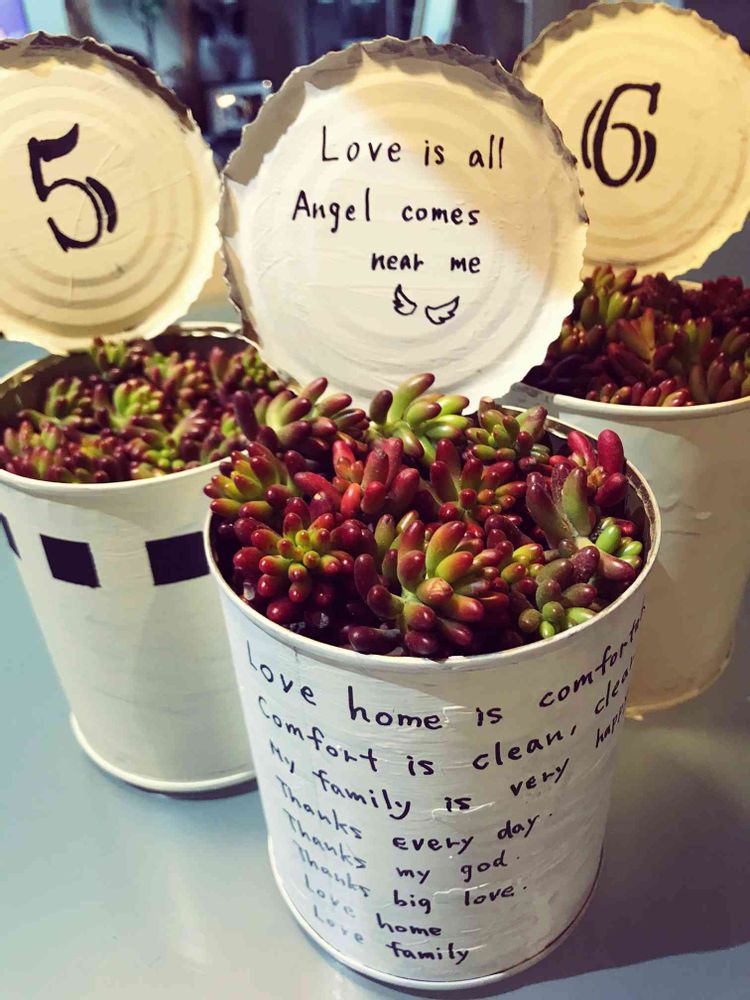 5
Love is all
Angel comes
near me
6
Love home is
Comfort is clean,
My family is very
Thanks every day.
Thanks my god.
Thanks big love.
Love home
Love family